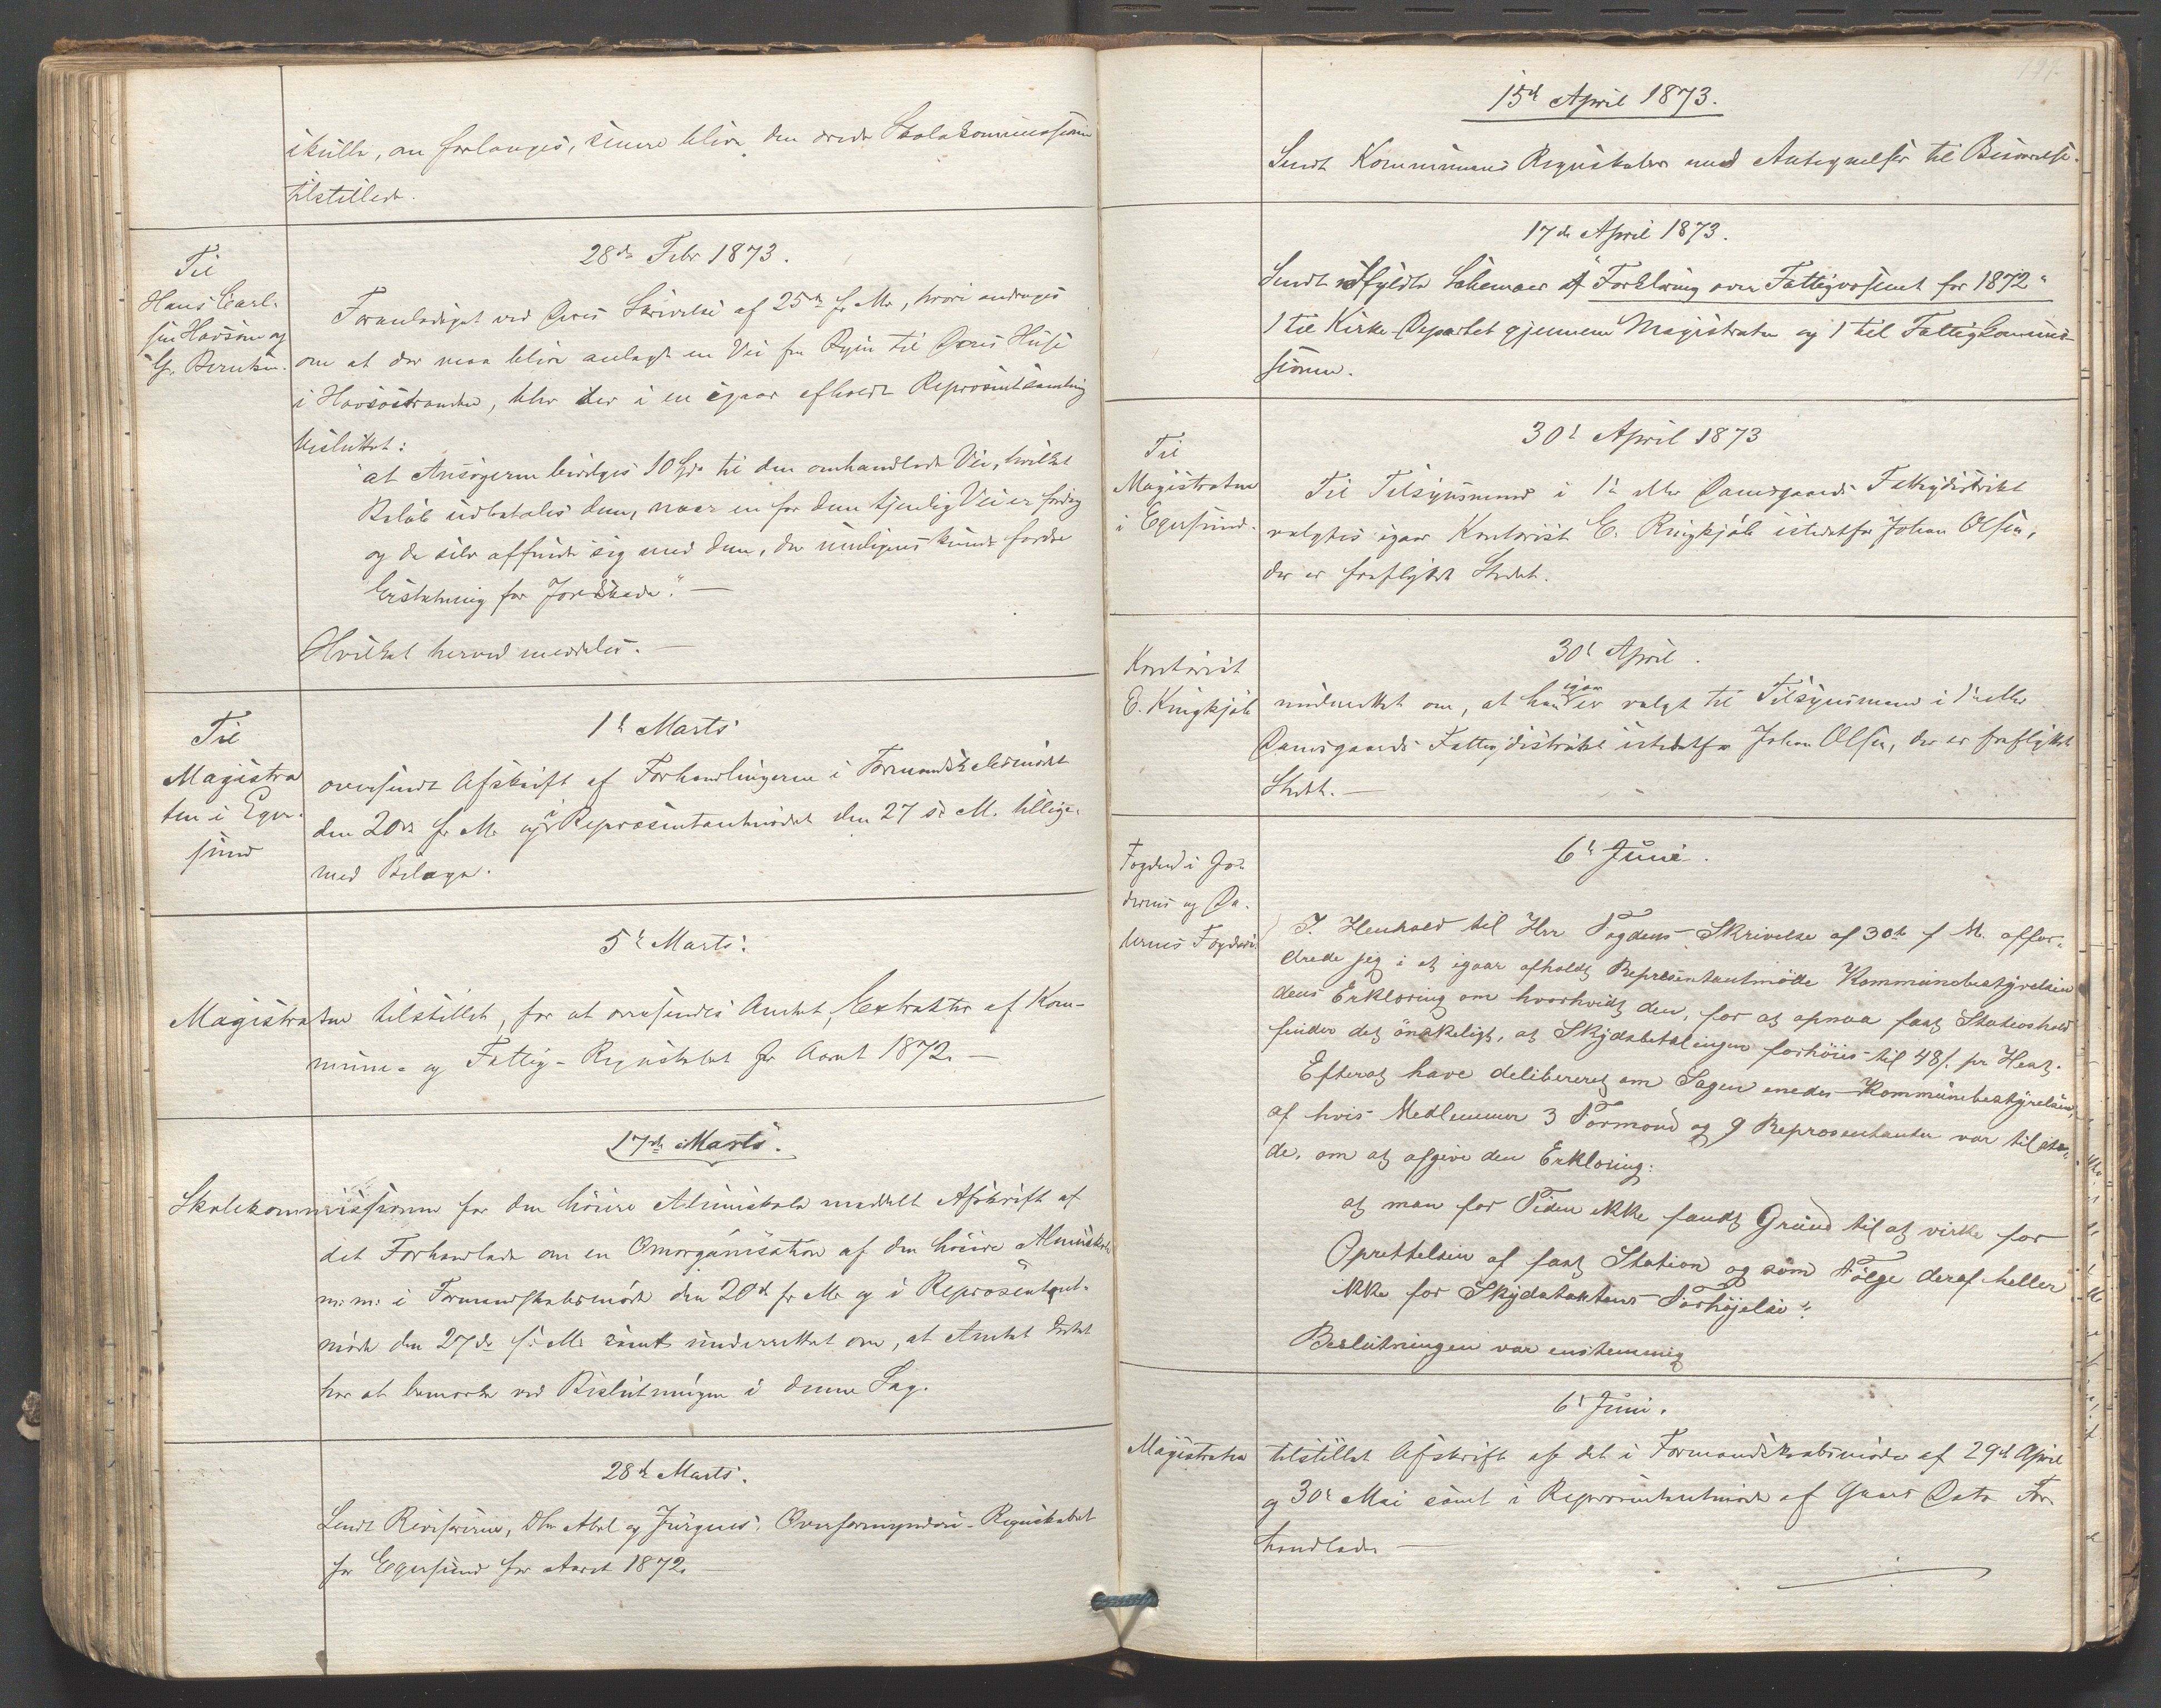 skulle, om forlanges, senere blive den ærede Skolekommission
tilstillede.
Til
Hans Carl-
sen Havsøen og
G. Berntsen.
28de Febr 1873.
Foranlediget ved Deres Skrivelse af 25de f. M., hvori andrages
om at der maa blive anlagt en Vei fra Byen til Deres Huse
i Havsøstranden, blev der i en igaar afholdt Repræsentsamling
besluttet:
"at Ansøgerne bevilges 10 Spd. til den omhandlede Vei, hvilket
Beløb udbetales dem, naar en for dem tjenlig Vei er færdig
og de selv affinde sig med dem, der muligens kunde fordre
Erstatning for Jordskade". —
Hvilket herved meddeles. —
Til
Magistra
ten i Eger-
sund
1ste Marts
oversendt Afskrift af Forhandlingerne i Formandskabsmødet
den 20de f. M. og i Repræsentantmødet den 27 s. M. tillige-
med Bilage.
5te Marts.
Magistraten tilstillet, for at oversendes Amtet, Extrakter af Kom-
mune- og Fattig-Regnskabet for Aaret 1872. —
17de Marts.
Skolekommissionen for den høiere Almueskole meddelt Afskrift af
det Forhandlede om en Omorganisation af den høiere Almueskole
m: m: i Formandskabsmøde den 20de f. M. og i Repræsentant-
møde den 27de s. M. samt underrettet om, at Amtet Intet
har at bemærke ved Beslutningen i denne Sag.
28de Marts.
Sendt Revisorerne, Dhr Abel og Jürgens, Overformynderi-Regnskabet
for Egersund for Aaret 1872. —
15de April 1873.
Sendt Kommunens Regnskaber med Antegnelser til Besvarelse.
17de April 1873.
Sendt udfyldte Schemaer af "Forklaring over Fattigvæsenet for 1872"
1 til Kirke-Departet gjennem Magistraten og 1 til Fattigkommis-
sionen.
Til
Magistraten
i Egersund.
30te April 1873
Til Tilsynsmand i 1ste eller Damsgaards Fattigdistrikt
valgtes igaar Kontorist E. Ringkjøb istedetfor Johan Olsen,
der er fraflyttet Stedet.
Kontorist
E. Ringkjøb
30te April.
underrettet om, at han igaar er valgt til Tilsynsmand i 1ste eller
Damsgaards Fattigdistrikt istedetfor Johan Olsen, der er fraflyttet
Stedet. —
Fogden i Jæ-
derens og Da-
lernes Fogderi.
6te Juni.
I Henhold til Herr Fogdens Skrivelse af 30te f. M. affor-
drede jeg i et igaar afholdt Repræsentantmøde Kommunebestyrelsen
dens Erklæring om hvorvidt den, for at opnaa fast Stationshold
finder det ønskeligt, at Skydsbetalingen forhøies til 48 s. pr Hest.
Efterat have delibereret om Sagen enedes Kommunebestyrelsen,
af hvis Medlemmer 3 Formænd og 9 Repræsentanter var tilste-
de, om at afgive den Erklæring:
at man for Tiden ikke fandt Grund til at virke for
Oprettelsen af fast Station og som Følge deraf heller
ikke for Skydstaktens Forhøielse".
Beslutningen var enstemmig
6te Juni.
Magistraten
tilstillet Afskrift af det i Formandskabsmøder af 29de April
og 30te Mai samt i Repræsentantmøde af Gaars Dato For-
handlede —